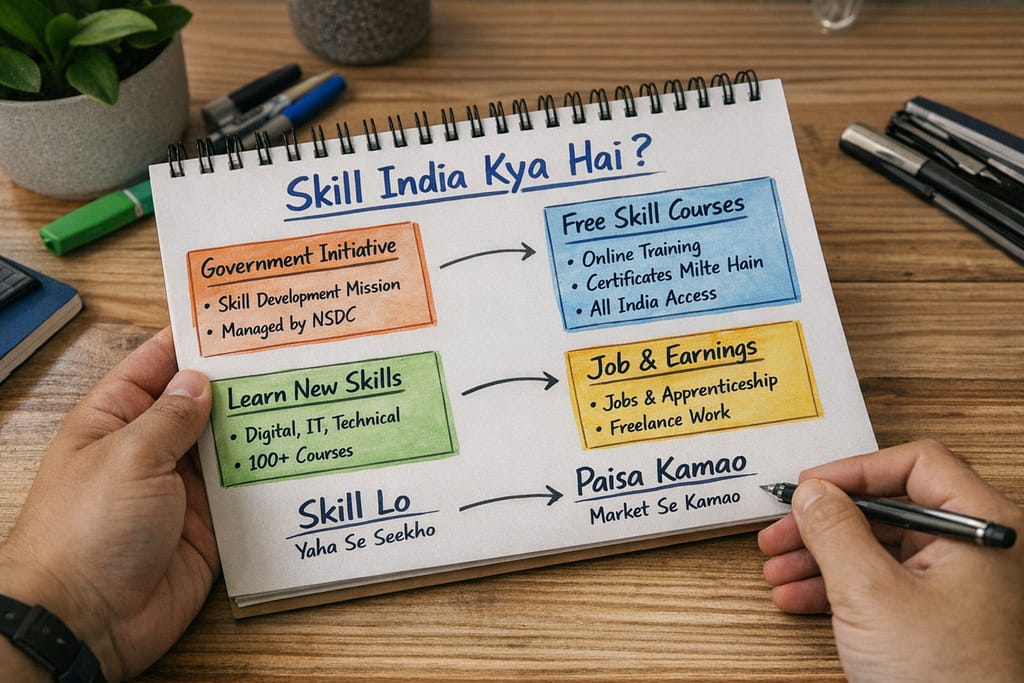 Skill India Kya Hai?
Government Initiative
• Skill Development Mission
• Managed by NSDC
Free Skill Courses
• Online Training
• Certificates Milte Hain
• All India Access
Learn New Skills
• Digital, IT, Technical
• 100+ Courses
Job & Earnings
• Jobs & Apprenticeship
• Freelance Work
Skill Lo
Yaha Se Seekho
Paisa Kamao
Market Se Kamao